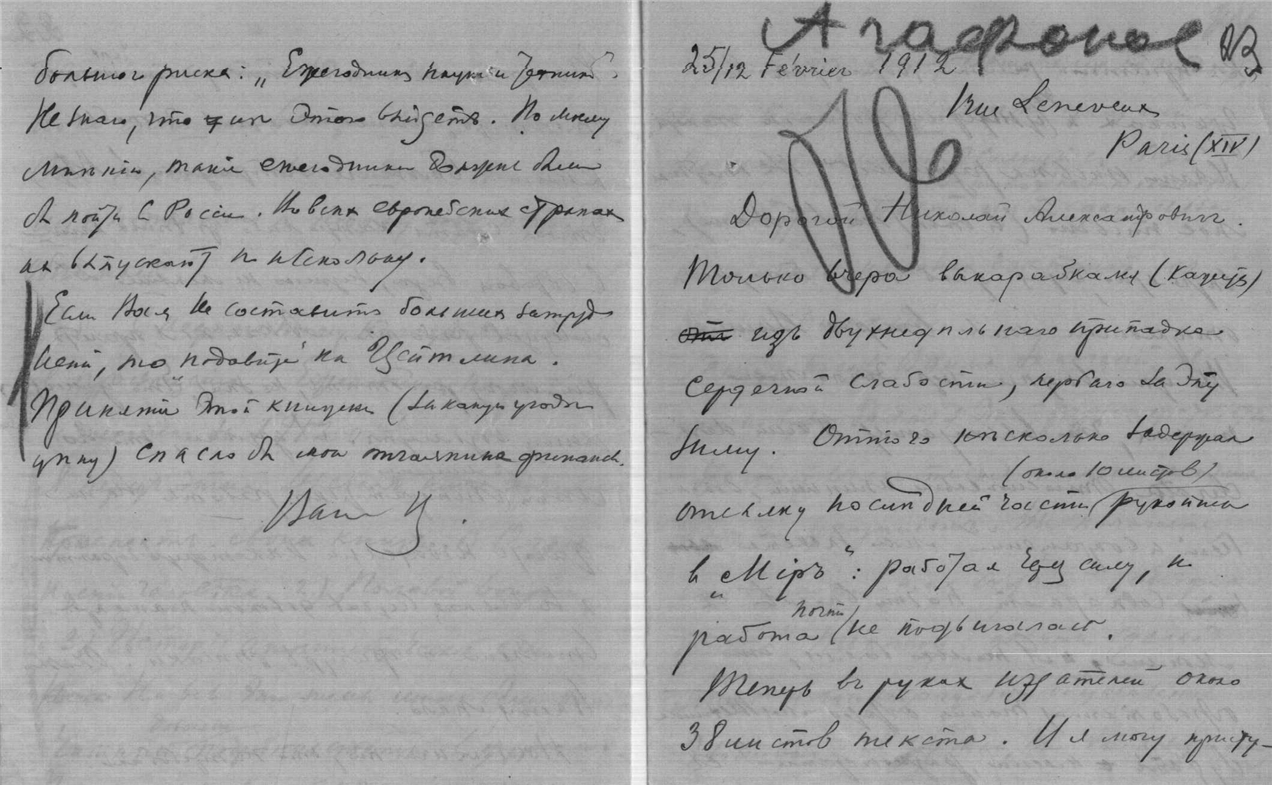 большого риска: „Ежегодник науки и техники“.
Не знаю, что из этого выйдет. По моему
мнению, такие ежегодники должны были
бы пойти в России. Во всех европейских странах
их выпускают по нескольку.
Если Вам не составит больших затруд-
нений, то подавите на Цейтлина.
Принятие этой книжки (за какую угодно
цену) спасло бы мои финанс.
Ваш
Агафонов
23
25/12 Février 1912
1 Rue Leneveux
Paris (XIV)
Дорогой Николай Александрович.
Только вчера выкарабкался (кажется)
изъ двухнедельнаго припадка
сердечной слабости, перваго за эту
зиму. Оттого несколько задержал
(около 10 листов)
отсылку последней части рукописи
в „Мiръ“: работал через силу, и
почти
работа не подвигалась.
Теперь въ руках издателей около
38 листов текста. И я могу присту-